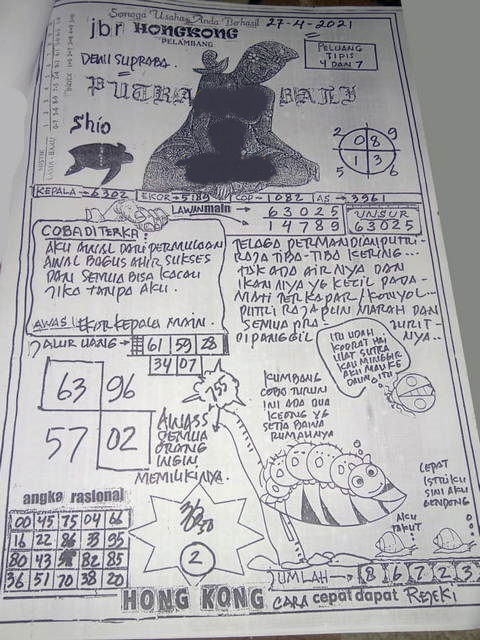 Semoga Usaha Anda Berhasil 27-4-2021
jbr HONGKONG
PELAMBANG
DEWI SUPRABA.
PELUANG
TIPIS
4 DAN 7
PUTRA BALI
Shio
2 0 8 9
5 1 3 6
KEPALA → 6302 EKOR → 5189 COP → 1082 AS → 3961
LAWAN main → 63025
→ 14789
UNSUR
63025
COBA DITERKA:
AKU AWAL DARI PERMULAAN
AWAL BAGUS AHIR SUKSES
DAN SEMUA BISA KACAU
JIKA TANPA AKU.
AWAS! EKOR KEPALA MAIN.
TELAGA PERMANDIAN PUTRI-
RAJA TIBA-TIBA KERING...
TAK ADA AIRNYA DAN
IKANNYA YG KECIL PADA-
MATI TERKAPAR/KONYOL...
PUTRI RAJA PUN MARAH DAN
SEMUA PRA- JURIT-
DIPANGGIL NYA..
JALUR UANG → 61 59 28
34 07
63 96
57 02
757
AWASS
SEMUA
ORANG
INGIN
MEMILIKINYA.
ITU UDAH
KODRAT HAI
ULAT SUTRA
KAU MINGGIR
AKU MAU KE
DAUN ITU
KUMBANG
COBO TURUN
INI ADA DUA
KEONG YG
SETIA BAWA
RUMAHNYA
CEPAT
ISTRIKU
SINI AKU
GENDONG
AKU
TAKUT
angka rasional
00 45 75 04 66
16 22 86 33 95
80 43 82 85
36 51 70 38 20
2
JUMLAH → 8 6 7 2 3
HONG KONG CARA cepat dapat REJEKI